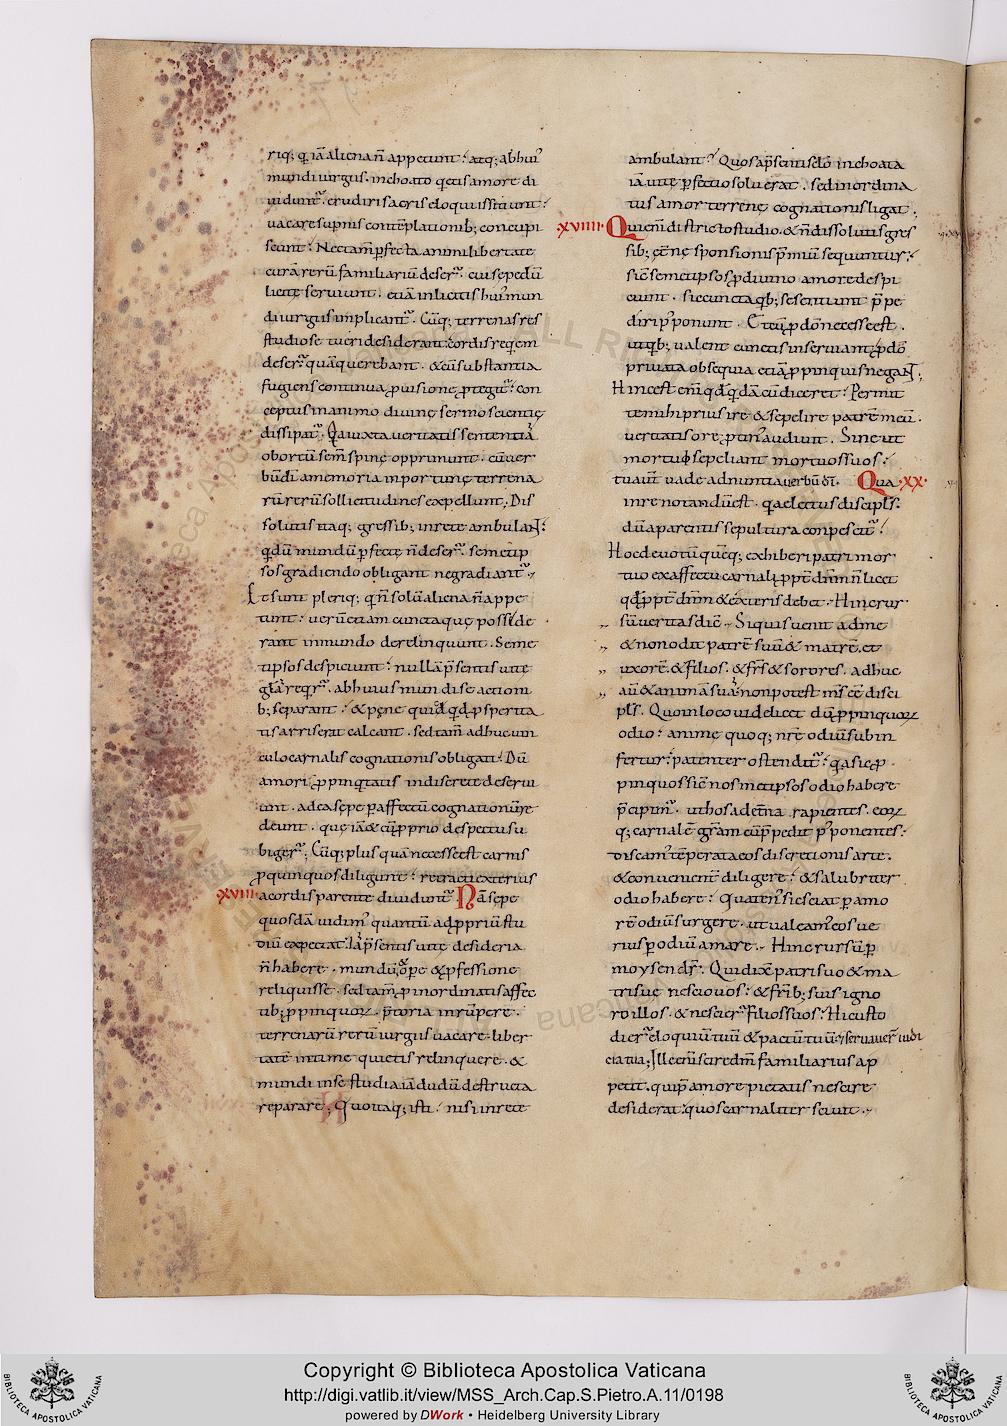 riq; q̄ iā aliena n̄ appetunt: atq; ab hui᾿
mundi iurgus. inchoato q̄etis amore di
uidunt᾿. erudiri sacris eloquiis sitiunt:
uacare supnis contēplationib; concupi
scunt: Nec tam̄ pfecta animi libertate
curā rerū familiariū deser᾿. cui sepe dū
licite seruiunt. etiā inlicitis hui᾿ mun
di iurgus implicant᾿. Cūq; terrenas res
studiose tueri desiderant. cordis req̄em
deser᾿ quā querebant. & cū substantia
fugiens continua puisione ptegit᾿: con
ceptus in animo diuinę sermo scientię
dissipat᾿. Q̄a iuxta ueritatis sententiā
obortū semē spinę opprimunt. cū uer
bū dī a memoria inportunę terrena
rū rerū sollicitudines expellunt; Dis
solutis itaq; gressib; in rete ambulant:
q̄ dū mundū pfecte n̄ deser᾿. semetip
sos gradiendo obligant ne gradiant᾿.
Et sunt pleriq; q̄ n̄ solū aliena n̄ appe
tunt: uerū etiam cuncta quę possi de
rant in mundo derelinquunt. Seme
tipsos despiciunt: nullā p̄sentis uitę
gl̄ā reqr᾿. ab huius mundi se actioni
b; separant: & pęne quid q̄d pspertia
tis arriserit calcant. sed tam̄ adhuc uin
culo carnalis cognationis obligati: Dū
amori ppinq̄tatis indiscrete deserui
unt. ad ea sepe p affectū cognationū re
deunt. quę iā & cū pprio despectu su
biger᾿; Cūq; plus quā necesse est carnis
pquinquos diligunt: retracti exterius
xviii. a cordis parente diuidunt᾿ Nā sepe
quosdā uidim᾿ quantū ad ppriū stu
diū expectat. iā p̄sentis uitę desideria
n̄ habere. mundū ope & pfessione
reliquisse. sed tam̄ p inordinatis affec
tib; ppinquoꝝ p̄toria inrūpere.
terrenarū rerū iurgiis uacare. liber
tatē intime quietis relinquere. &
mundi in se studia iā dudū destructa
reparare; Quo itaq; isti. nisi in rete
ambulant? Quos a p̄sentis seło inchoata
iā uitę pfectio soluerat. sed inordina
tus amor terrenę cognationis ligat.
xviiii. Qui enī districto studio. & n̄ dissolutis gres
sib; ęternę sponsionis p̄miū sequuntur:
sic̄ semetipsos p diuino amore despi
ciunt. sic cuncta qb; se sentiunt p̄pe
diri p᾿ponunt. Et cū p dō necesse est.
ut qb; ualent cunctis inseruiant. p dō
priuata obsequia etiā ppinquis negant;
Hinc est enī qd̄ q̄dā cū diceret: Permit
te mihi prius ire & sepelire patrē meū.
ueritatis ore ptin᾿ audiuit. Sine ut
mortui sepeliant mortuos suos:
tu aut̄ uade adnuntia uerbū dī. Qua .xx.
in re notandū est. q̄a electus discipls᾿.
dū a parentis sepultura conpescit᾿:
Hoc deuotū quēq; exhiberi patri mor
tuo ex affectu carnali ppt̄ dn̄m n̄ licet
qd̄ ppt̄ dn̄m & exteris debet. Hinc rur
sū ueritas dic̄. Si quis uenit ad me
& non odit patrē suū & matrē. et
uxorē. & filios. & fr̄s & sorores. adhuc
aū & animā suā. non potest m̄s eē disci
pls᾿. Quo in loco uidelicet dū ppinquoꝝ
odio: animę quoq; nr̄e odiū subin
fertur: patenter ostendit᾿: q̄a sic p
pinquos sic̄ nosmetipsos odio habere
p̄cipim᾿. ut hos ad et̄na rapientes. eoꝝ
q; carnalē gr̄am cū p̄pedit p᾿ponentes:
discam᾿ tēperata eos discretionis arte.
& conuenient̄ diligere: & salubriter
odio habere: Quaten᾿ sic sciat p amo
rē odiū surgere. ut ualeam᾿ eos ue
rius p odiū amare. Hinc rursū p
moysen dr̄: Qui dix̄ patri suo & ma
tri suę nescio uos: & fr̄ib; suis igno
ro illos. & nescier᾿ filios suos: Hi custo
dier᾿ eloquiū tuū & pactū tuū. seruauer᾿ iudi
cia tua; Ille enī scire dn̄m familiarius ap
petit. qui p amore pietatis nescire
desiderat. quos carnaliter sciuit.
Copyright © Biblioteca Apostolica Vaticana
http://digi.vatlib.it/view/MSS_Arch.Cap.S.Pietro.A.11/0198
powered by DWork • Heidelberg University Library
BIBLIOTECA APOSTOLICA VATICANA
BIBLIOTECA APOSTOLICA VATICANA